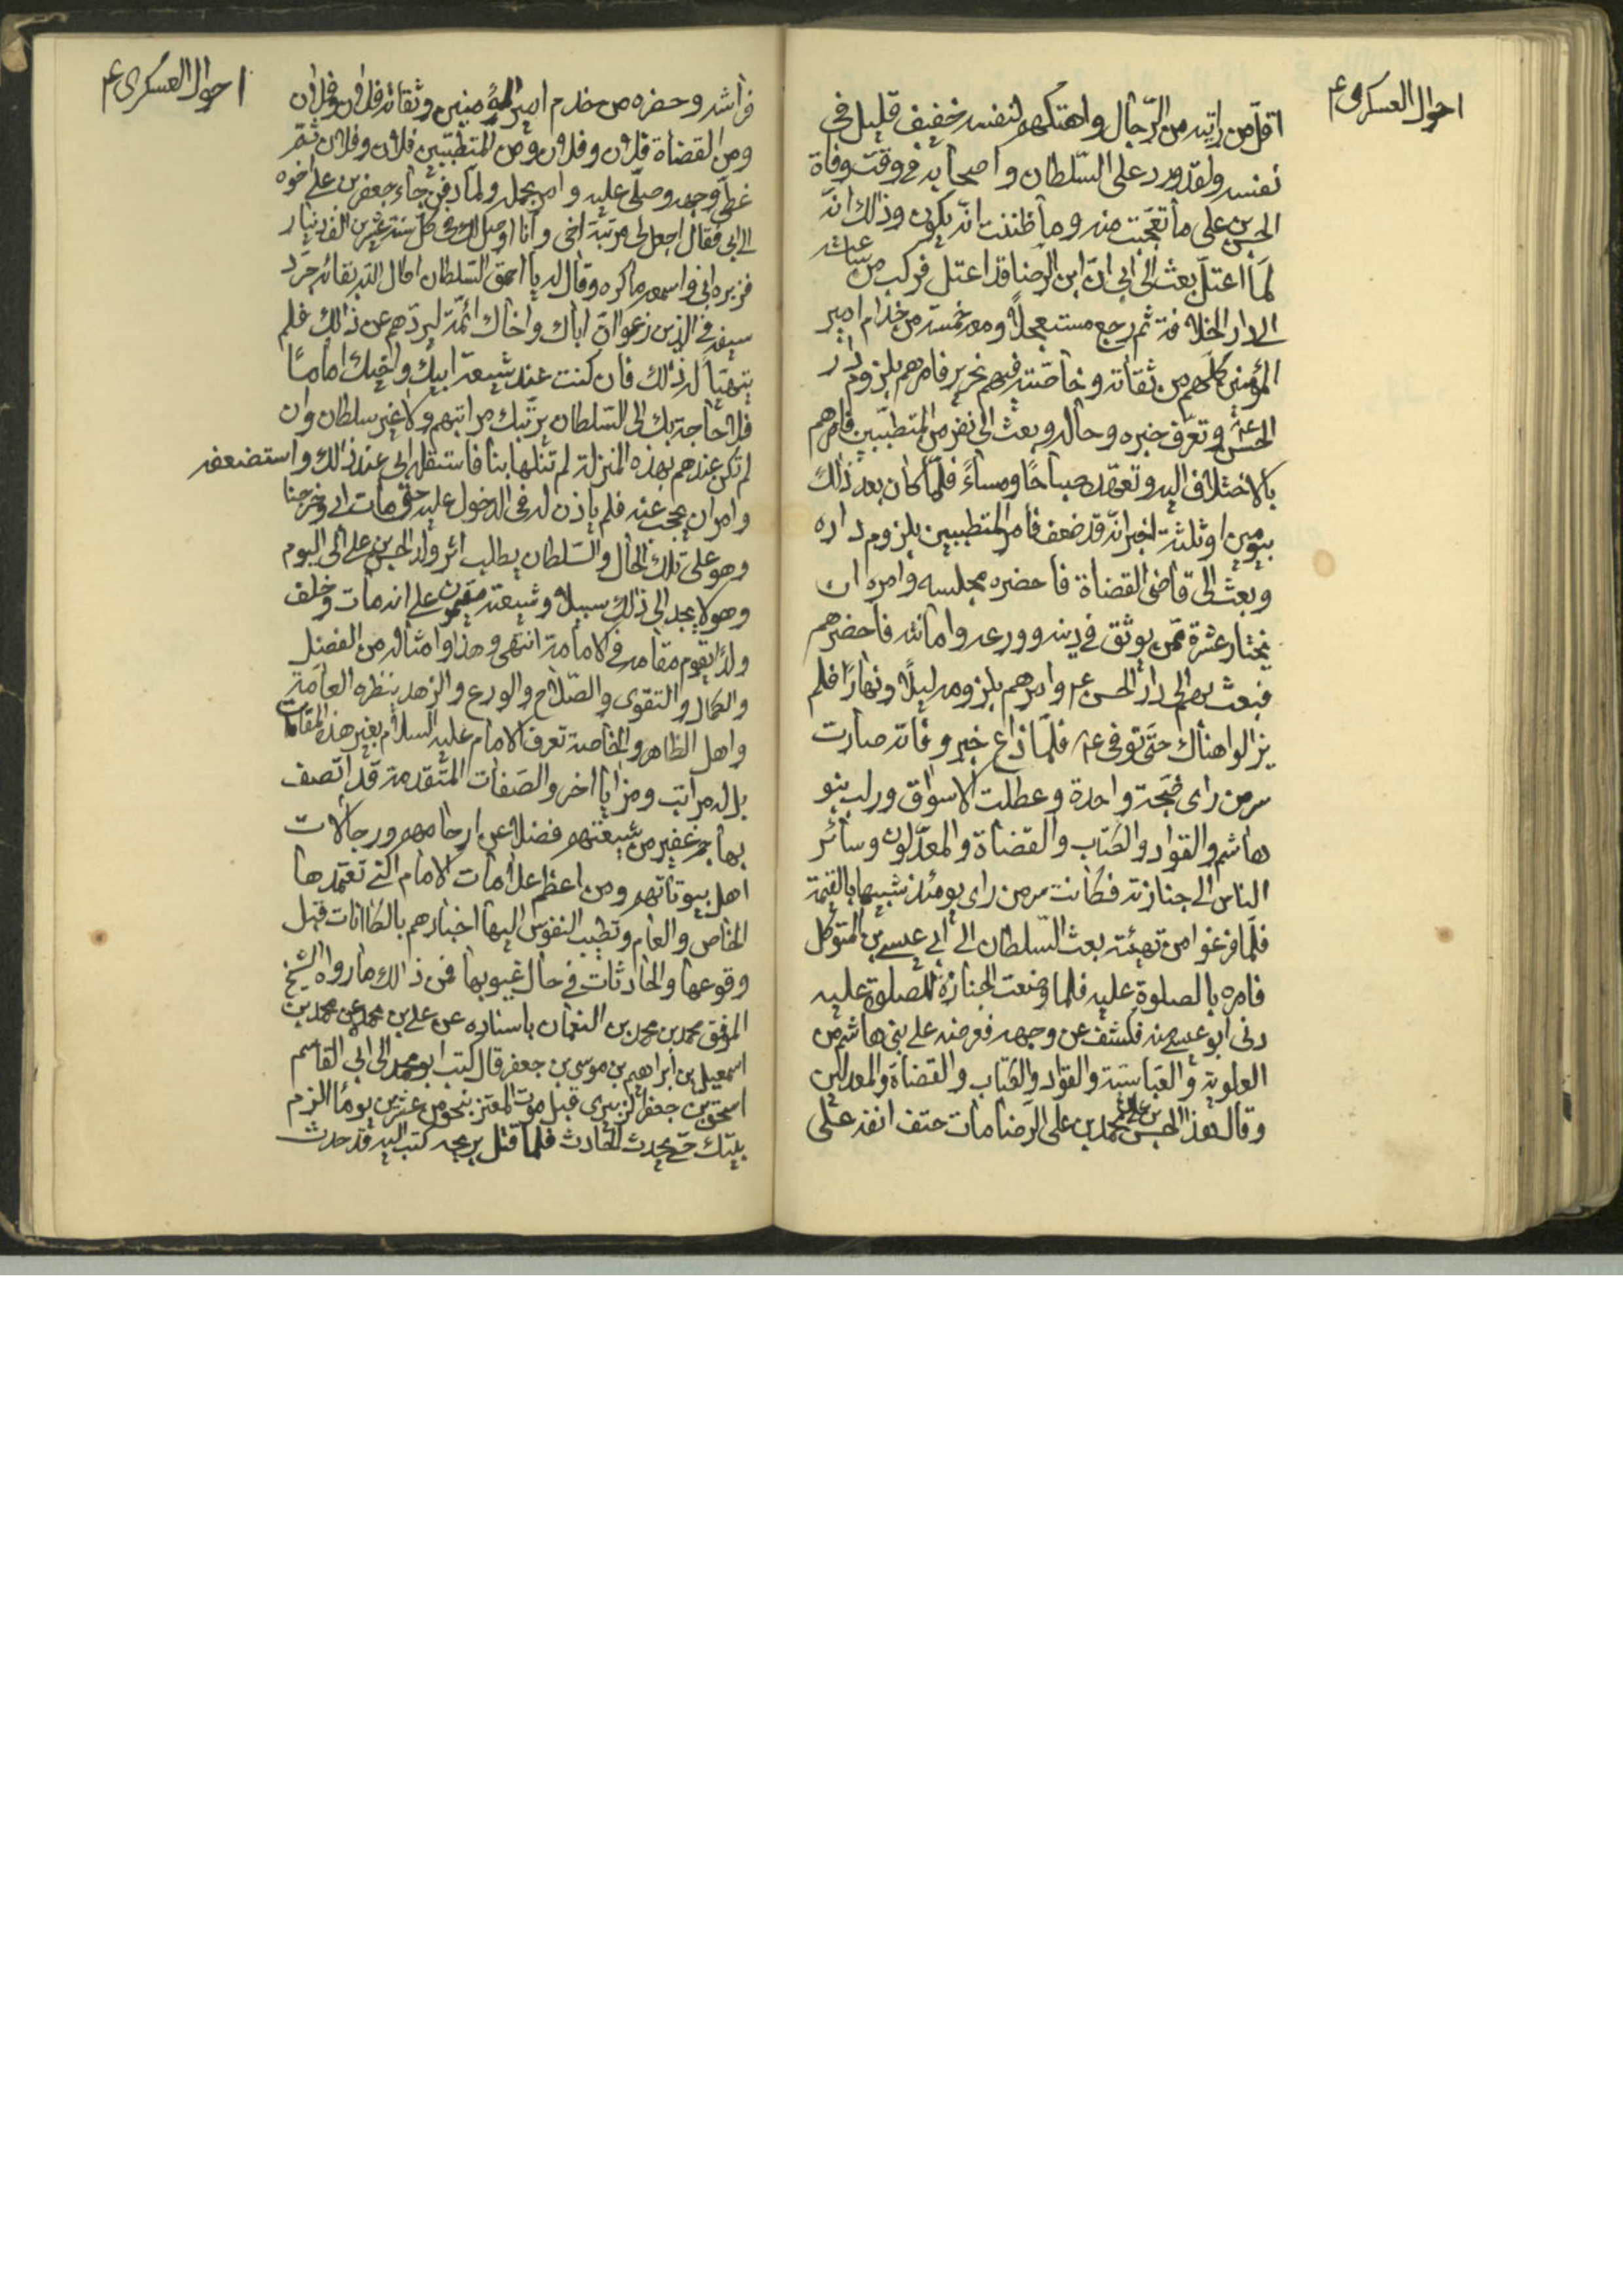 احوال العسكري ع
اقل من رايته من الرّجال واهتكهم لنفسه خفيف قليل في
نفسه ولقد ورد على السّلطان واصحابه في وقت وفاة
الحسن بن علي ما تعجّبت منه وما ظننت انّه يكون وذلك انّه
لمّا اعتلّ بعث الى ابي انّ ابن الرضا قد اعتل فركب من ساعته
الى دار الخلافة ثم رجع مستعجلاً ومعه خمسة من خدام امير
المؤمنين كلّهم من ثقاته وخاصّته فيهم نحرير فامرهم بلزوم دار
الحسن ع وتعرّف خبره وحاله وبعث الى نفر من المتطبّبين فامرهم
بالاختلاف اليه وتعهّده صباحًا ومساءً فلمّا كان بعد ذالك
بيومين او ثلثة اخبر انّه قد ضعف فامر المتطببين بلزوم داره
وبعث الى قاضي القضاة فاحضره مجلسه وامره ان
يختار عشرة ممّن يوثق في دينه وورعه وامانته فاحضرهم
فبعث بهم الى دار الحسن ع وامرهم بلزومه ليلاً ونهارًا فلم
يزالوا هناك حتّى توفى ع فلمّا ذاع خبر وفاته صارت
سر من راى ضجّة واحدة وعطلت الاسواق وركب بنو
هاشم والقواد والكتاب والقضاة والمعدّلون وسائر
الناس الى جنازته فكانت سر من راى يومئذ شبيها بالقيمة
فلمّا فرغوا من تهيئته بعث السّلطان الى ابي عيسى بن المتوكل
فامره بالصلوة عليه فلما وضعت الجنازة للصلوة عليه
دنى ابو عيسى منه فكشف عن وجهه فعرضه على بني هاشم من
العلوية والعباسيّة والقوّاد والكتاب والقضاة والمعدلين
وقال هذا الحسن بن علي بن محمد بن على الرضا مات حتف انفه على
احوال العسكري ع
فراشه وحضره من خدم امير المؤمنين وثقاته فلان وفلان
ومن القضاة فلان وفلان ومن المتطبّبين فلان وفلان ثمّ
غطّى وجهه وصلّى عليه وامر بحمله ولمّا دفن جاء جعفر بن على اخوه
الى ابي فقال اجعل لى مرتبة اخى وانا اوصل اليك في كل سنة عشرين الف دينار
فزبره ابي واسمعه ما كره وقال له يا احمق السّلطان اطال الله بقائه جرّد
سيفه في الذين زعموا انّ اباك واخاك ائمّة ليردّهم عن ذالك فلم
يتهيّأ له ذلك فان كنت عند شيعة ابيك واخيك امامًا
فلا حاجة بك الى السّلطان يرتّبك مراتبهم ولا غير سلطان وان
لم تكن عندهم بهذه المنزلة لم تنلها بنا فاستقله ابى عند ذالك واستضعفه
وامر ان يحجب عنه فلم ياذن له في الدخول عليه حتّى مات ابي وخرجنا
وهو على تلك الحال والسّلطان يطلب اثر ولد الحسن بن على الى اليوم
وهو لا يجد الى ذلك سبيلا وشيعته مقيمون على انه مات وخلف
ولدًا يقوم مقامه في الامامة انتهى وهذا وامثاله من الفضل
والكمال والتقوى والصّلاح والورع والزهد ينظره العامّة
واهل الظاهر والخاصة تعرف الامام عليه السلام بغير هذه المقامات
بل له مراتب ومزايا اخر والصفات المتقدمة قد اتصف
بها جم غفير من شيعتهم فضلا عن ارحامهم ورجالات
اهل بيوتاتهم ومن اعظم علامات الامام التي تعتمدها
الخاص والعام وتطيب النفوس اليها اخبارهم بالكائنات قبل
وقوعها والحادثات في حال غيوبها فمن ذالك ما رواه الشيخ
الموفق محمد بن محمد بن النعمان باسناده عن على بن محمد عن محمد بن
اسمعيل بن ابراهيم بن موسى بن جعفر قال كتب ابو محمد الى ابي القاسم
اسحق بن جعفر الزبيري قبل موت المعتز بنحو من عشرين يومًا الزم
بيتك حتى يحدث الحادث فلما قتل بريحه كتب اليه قد حدث